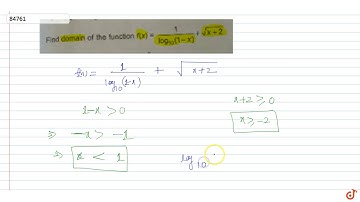 84761
Find domain of the function f(x) = 1/log₁₀(1-x) + √x+2
f(x) = 1/log₁₀(1-x) + √x+2
1-x > 0
x+2 ≥ 0
⇒ -x > -1
x ≥ -2
⇒ x < 1
log₁₀